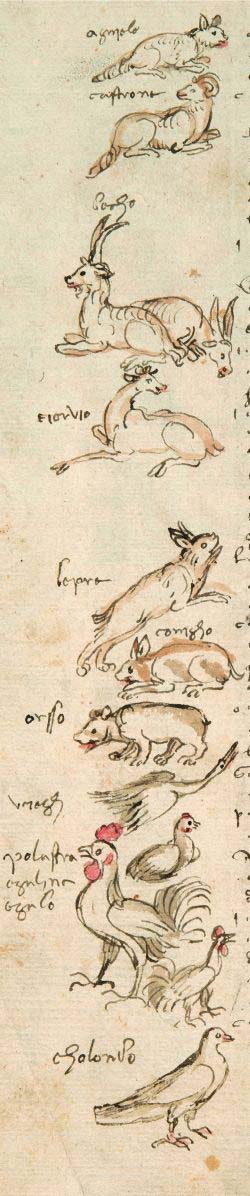 agnelo
castrone
becho
ciervio
lepre
conigho
orsso
polastra
e galina
e galo
cholonbo